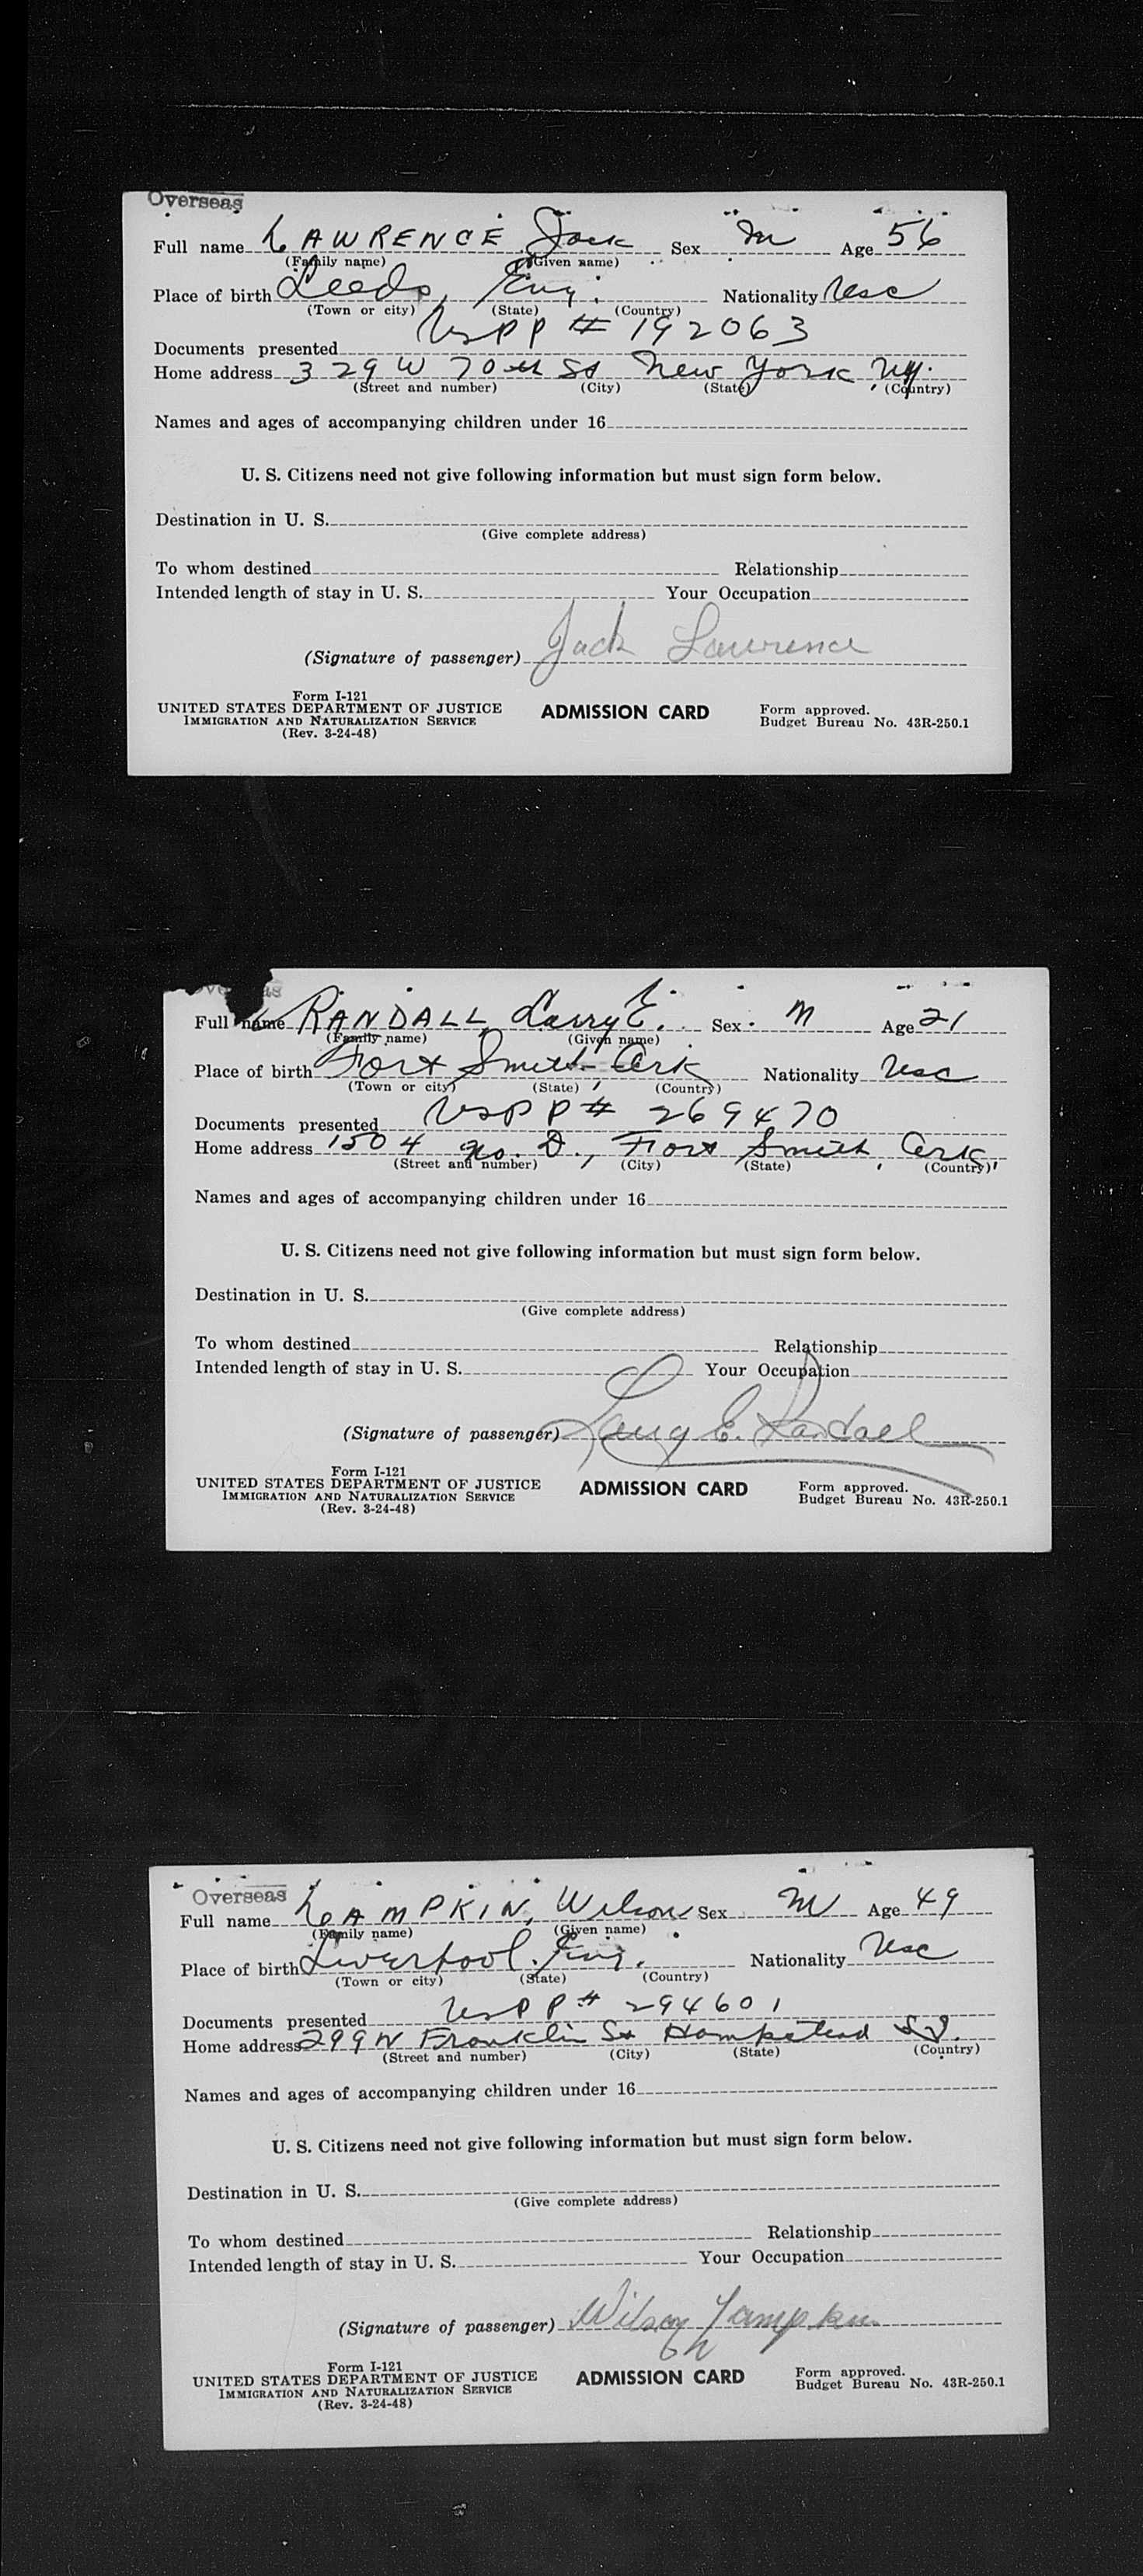 Overseas
Full name LAWRENCE Jack Sex M Age 56
(Family name) (Given name)
Place of birth Leeds, Eng. Nationality USC
(Town or city) (State) (Country)
Documents presented USPP # 192063
Home address 329 W 70th St New York, NY.
(Street and number) (City) (State) (Country)
Names and ages of accompanying children under 16
U. S. Citizens need not give following information but must sign form below.
Destination in U. S.
(Give complete address)
To whom destined Relationship
Intended length of stay in U. S. Your Occupation
(Signature of passenger) Jack Lawrence
Form I-121
UNITED STATES DEPARTMENT OF JUSTICE ADMISSION CARD Form approved.
IMMIGRATION AND NATURALIZATION SERVICE Budget Bureau No. 43R-250.1
(Rev. 3-24-48)
Full name RANDALL Larry E. Sex M Age 21
(Family name) (Given name)
Place of birth Fort Smith, Ark Nationality USC
(Town or city) (State) (Country)
Documents presented USPP # 269470
Home address 1504 No. D., Fort Smith, Ark.
(Street and number) (City) (State) (Country)
Names and ages of accompanying children under 16
U. S. Citizens need not give following information but must sign form below.
Destination in U. S.
(Give complete address)
To whom destined Relationship
Intended length of stay in U. S. Your Occupation
(Signature of passenger) Larry E. Randall
Form I-121
UNITED STATES DEPARTMENT OF JUSTICE ADMISSION CARD Form approved.
IMMIGRATION AND NATURALIZATION SERVICE Budget Bureau No. 43R-250.1
(Rev. 3-24-48)
Overseas
Full name LAMPKIN, Wilson Sex M Age 49
(Family name) (Given name)
Place of birth Liverpool, Eng. Nationality USC
(Town or city) (State) (Country)
Documents presented USPP # 294601
Home address 299 W Franklin St Hempstead L.I.
(Street and number) (City) (State) (Country)
Names and ages of accompanying children under 16
U. S. Citizens need not give following information but must sign form below.
Destination in U. S.
(Give complete address)
To whom destined Relationship
Intended length of stay in U. S. Your Occupation
(Signature of passenger) Wilson Lampkin
Form I-121
UNITED STATES DEPARTMENT OF JUSTICE ADMISSION CARD Form approved.
IMMIGRATION AND NATURALIZATION SERVICE Budget Bureau No. 43R-250.1
(Rev. 3-24-48)